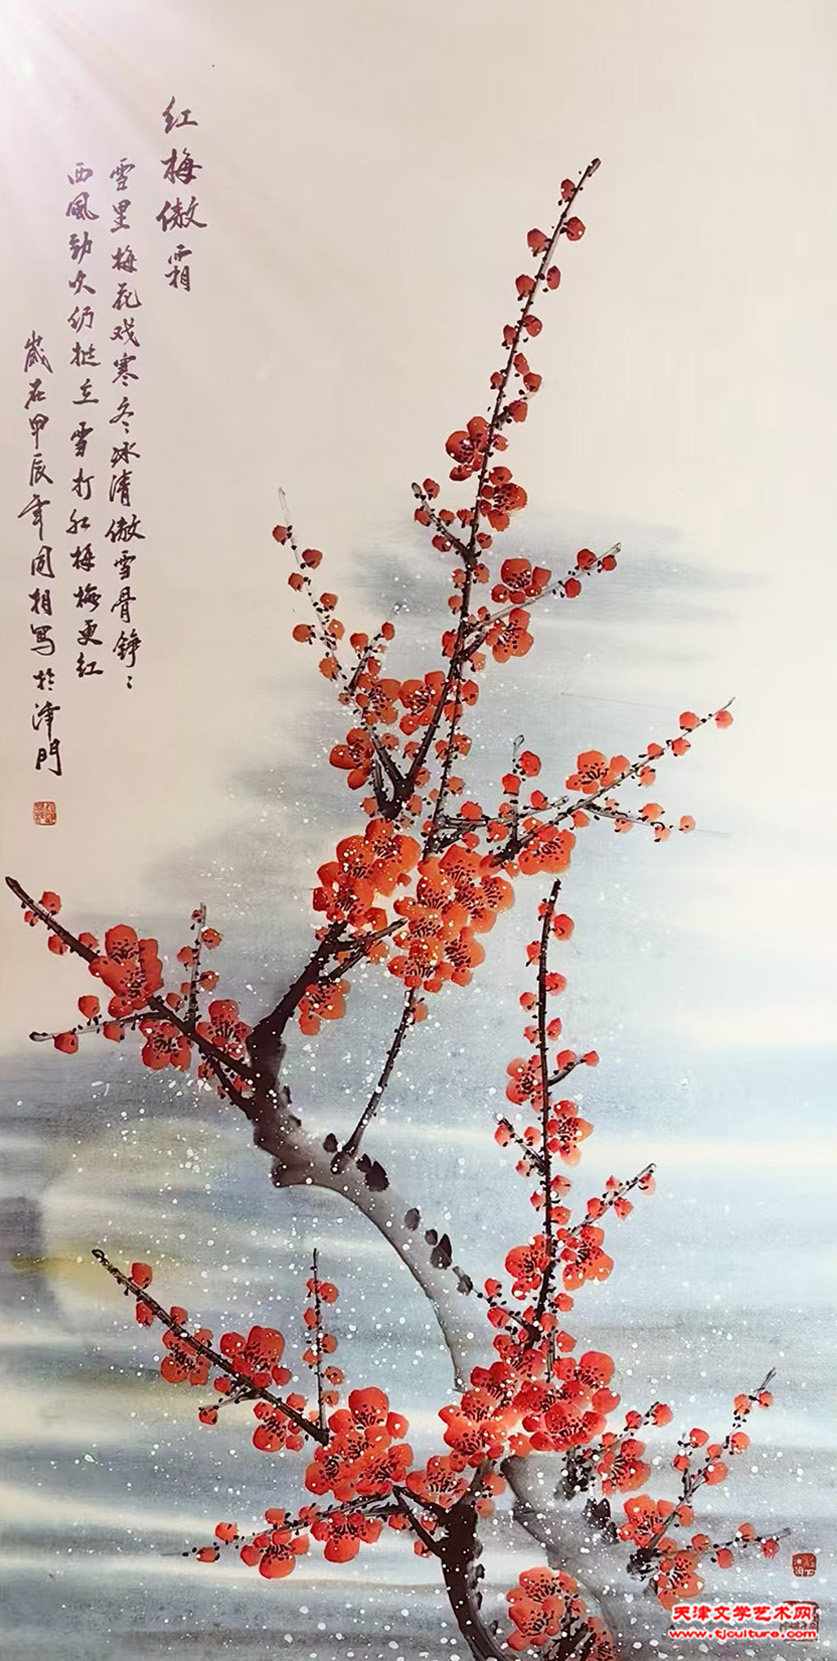 红梅傲霜
雪里梅花戏寒冬冰清傲雪骨铮々
西風劲吹仍挺立雪打红梅梅更红
歲在甲辰年周相写於津門
天津文学艺术网
www.tjculture.com